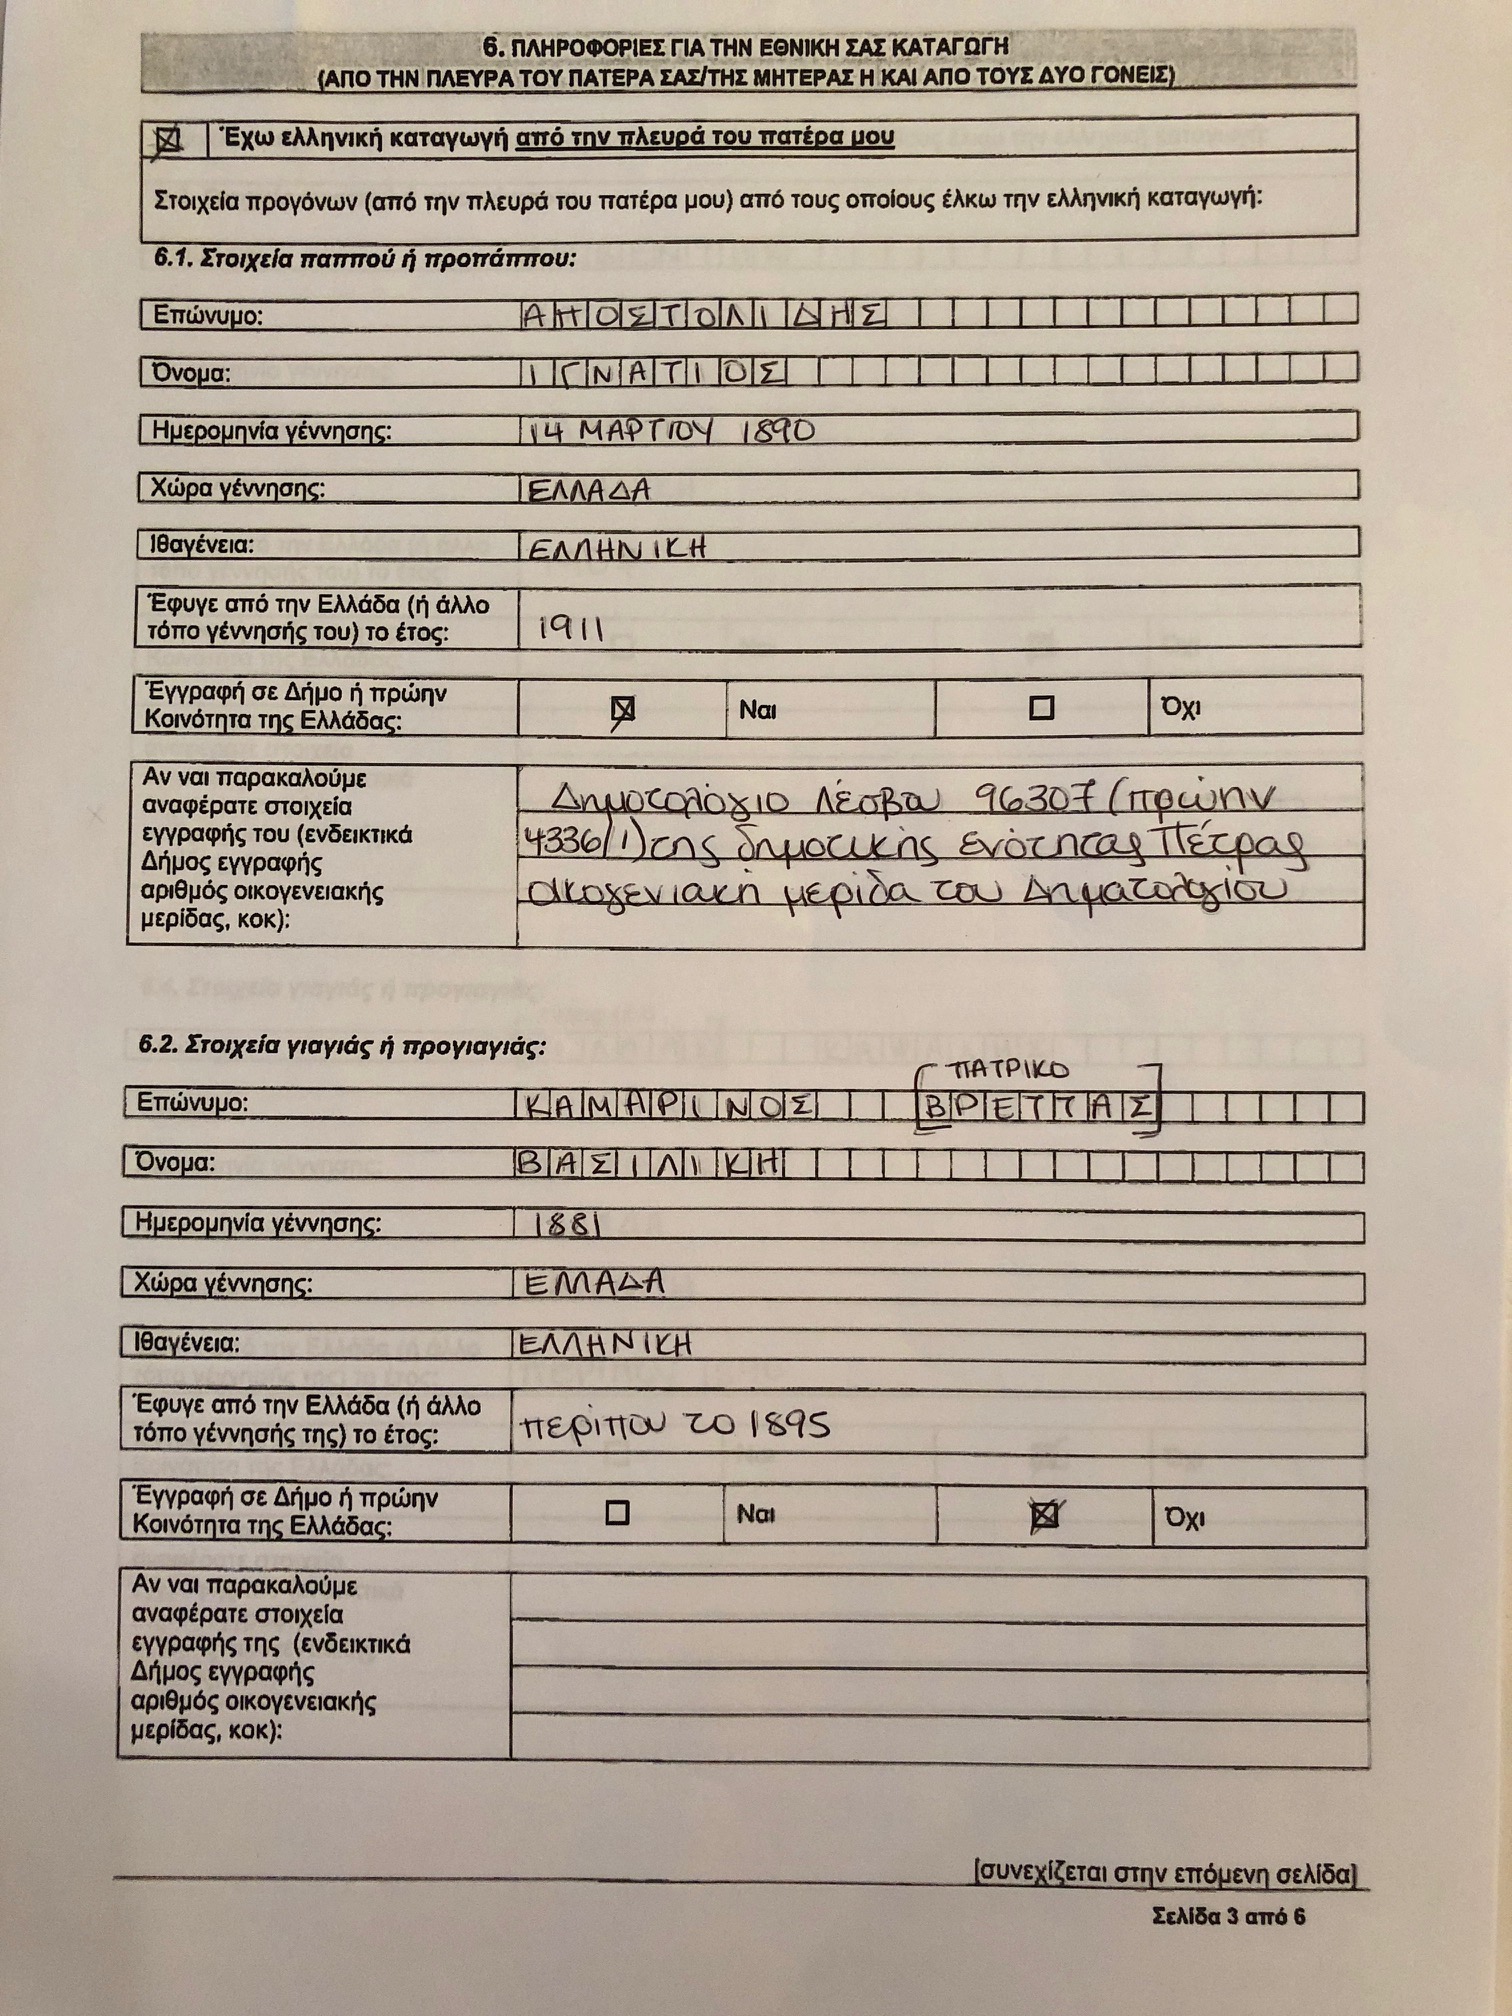 6. ΠΛΗΡΟΦΟΡΙΕΣ ΓΙΑ ΤΗΝ ΕΘΝΙΚΗ ΣΑΣ ΚΑΤΑΓΩΓΗ
(ΑΠΟ ΤΗΝ ΠΛΕΥΡΑ ΤΟΥ ΠΑΤΕΡΑ ΣΑΣ/ΤΗΣ ΜΗΤΕΡΑΣ Η ΚΑΙ ΑΠΟ ΤΟΥΣ ΔΥΟ ΓΟΝΕΙΣ)
Έχω ελληνική καταγωγή από την πλευρά του πατέρα μου
Στοιχεία προγόνων (από την πλευρά του πατέρα μου) από τους οποίους έλκω την ελληνική καταγωγή:
6.1. Στοιχεία παππού ή προπάππου:
Επώνυμο: ΑΠΟΣΤΟΛΙΔΗΣ
Όνομα: ΙΓΝΑΤΙΟΣ
Ημερομηνία γέννησης: 14 ΜΑΡΤΙΟΥ 1890
Χώρα γέννησης: ΕΛΛΑΔΑ
Ιθαγένεια: ΕΛΛΗΝΙΚΗ
Έφυγε από την Ελλάδα (ή άλλο
τόπο γέννησής του) το έτος: 1911
Έγγραφή σε Δήμο ή πρώην
Κοινότητα της Ελλάδας: Ναι Όχι
Αν ναι παρακαλούμε
αναφέρατε στοιχεία
εγγραφής του (ενδεικτικά
Δήμος εγγραφής
αριθμός οικογενειακής
μερίδας, κοκ):
Δημοτολόγιο Λέσβου 96307 (πρώην
4336/1) της δημοτικής ενότητας Πέτρας
οικογενιακή μερίδα του Δηματολγίου
6.2. Στοιχεία γιαγιάς ή προγιαγιάς:
ΠΑΤΡΙΚΟ
Επώνυμο: ΚΑΜΑΡΙΝΟΣ [ΒΡΕΤΤΑΣ]
Όνομα: ΒΑΣΙΛΙΚΗ
Ημερομηνία γέννησης: 1881
Χώρα γέννησης: ΕΛΛΑΔΑ
Ιθαγένεια: ΕΛΛΗΝΙΚΗ
Έφυγε από την Ελλάδα (ή άλλο
τόπο γέννησής της) το έτος: περίπου το 1895
Έγγραφή σε Δήμο ή πρώην
Κοινότητα της Ελλάδας: Ναι Όχι
Αν ναι παρακαλούμε
αναφέρατε στοιχεία
εγγραφής της (ενδεικτικά
Δήμος εγγραφής
αριθμός οικογενειακής
μερίδας, κοκ):
[συνεχίζεται στην επόμενη σελίδα]
Σελίδα 3 από 6